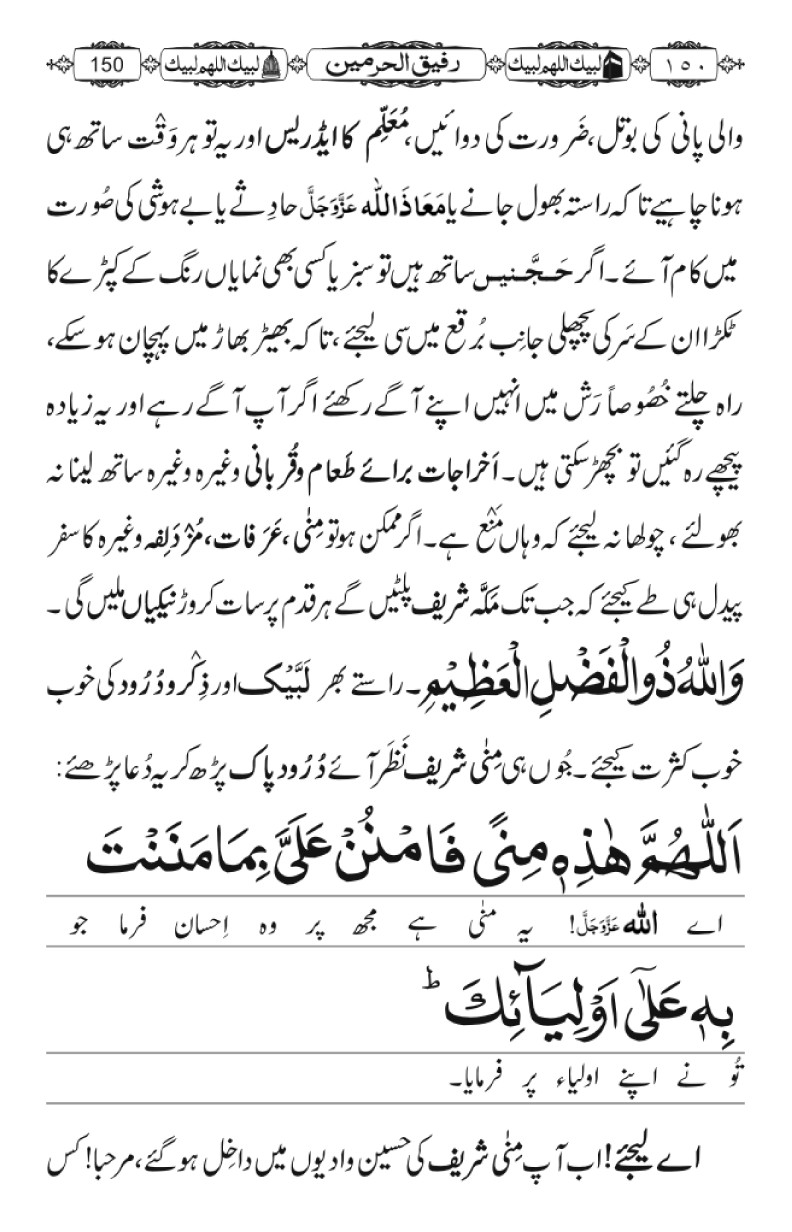 ١٥٠ لبیك اللھم لبیك رفیق الحرمین لبیك اللھم لبیك 150
والی پانی کی بوتل، ضَرورت کی دوائیں، مُعَلِّم کا ایڈریس اور یہ تو ہر وَقْت ساتھ ہی
ہونا چاہیے تاکہ راستہ بھول جانے یا مَعَاذَ اللّٰہ عَزَّوَجَلَّ حادِثے یا بے ہوشی کی صُورت
میں کام آئے۔ اگر حَجَّنیں ساتھ ہیں تو سبز یا کسی بھی نمایاں رنگ کے کپڑے کا
ٹکڑا ان کے سَر کی پچھلی جانِب بُرقع میں سی لیجئے، تاکہ بھیڑ بھاڑ میں پہچان ہو سکے،
راہ چلتے خُصُوصاً رَش میں انہیں اپنے آگے رکھئے اگر آپ آگے رہے اور یہ زیادہ
پیچھے رہ گئیں تو بچھڑ سکتی ہیں۔ اَخراجات برائے طَعام وقُربانی وغیرہ وغیرہ ساتھ لینا نہ
بھولئے، چولھا نہ لیجئے کہ وہاں مَنْع ہے۔ اگر ممکن ہو تو مِنٰی، عَرَفات، مُزْدَلِفہ وغیرہ کا سفر
پیدل ہی طے کیجئے کہ جب تک مَکَّہ شریف پلٹیں گے ہر قدم پر سات کروڑ نیکیاں ملیں گی۔
وَاللّٰہُ ذُوالْفَضْلِ الْعَظِیْمِ۔ راستے بھر لَبَّیْک اور ذِکْر و دُرُود کی خوب
خوب کثرت کیجئے۔ جُوں ہی مِنٰی شریف نَظَر آئے دُرُودِ پاک پڑھ کر یہ دُعا پڑھئے:
اَللّٰھُمَّ ھٰذِہٖ مِنًی فَامْنُنْ عَلَیَّ بِمَا مَنَنْتَ
اے اللّٰہ عَزَّوَجَلَّ! یہ منٰی ہے مجھ پر وہ اِحسان فرما جو
بِہٖ عَلٰٓی اَوْلِیَآئِكَ ط
تُو نے اپنے اولیاء پر فرمایا۔
اے لیجئے! اب آپ مِنٰی شریف کی حسین وادیوں میں داخِل ہوگئے، مرحبا! کس